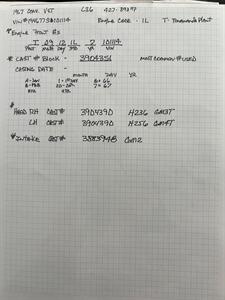 1967 CONV. VET L36 427-390HP
VIN# 194677S101114 ENGINE CODE - IL T-TONAWANDA PLANT
* ENGINE FRONT #s
T 09 12 IL 7 101114
PLANT MONTH DAY YR VIN
* CAST # BLOCK - 3904351 MOST COMMON # USED
CASTING DATE -
MONTH DAY YR
A-JAN 1-1ST DAY 6=66
B-FEB 7=67
ETC ETC
* HEAD RH CAST# 3904390
LH CAST# 3904390
* INTAKE CAST# 3883948